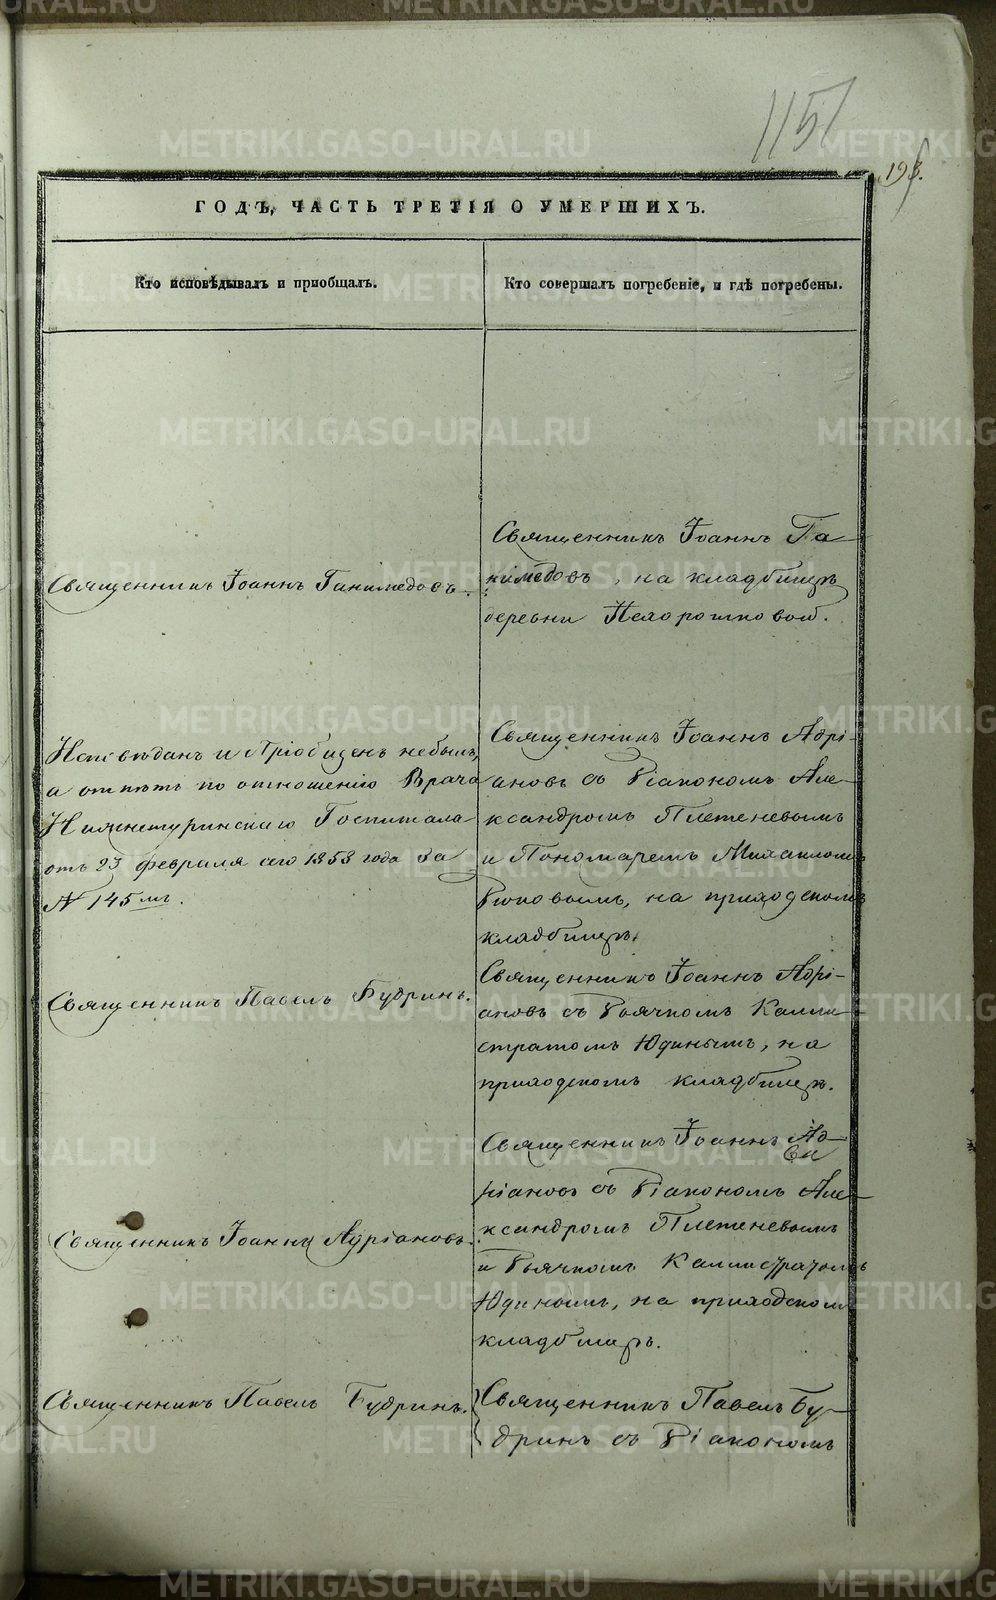 1151
193.
ГОДЪ, ЧАСТЬ ТРЕТІЯ О УМЕРШИХЪ.
Кто исповѣдывалъ и приобщалъ.
Кто совершалъ погребеніе, и гдѣ погребены.
Священникъ Іоаннъ Ганимедовъ.
Священникъ Іоаннъ Га-
нимедовъ, на кладбищѣ
деревни Нехорошковой.
Исповѣданъ и Пріобщенъ небылъ,
а отпѣтъ по отношенію Врача
Нижнетуринскаго Госпиталя
отъ 23 февраля сего 1853 года за
№ 145мъ.
Священникъ Іоаннъ Адрі-
ановъ съ Діакономъ Але-
ксандромъ Плетеневымъ
и Пономаремъ Михаиломъ
на приходскомъ
кладбищѣ.
Священникъ Павелъ Будринъ.
Священникъ Іоаннъ Адрі-
ановъ съ Дьячкомъ Калли-
стратомъ Юдинымъ, на
приходскомъ кладбищѣ.
Священникъ Іоаннъ Адріановъ.
Священникъ Іоаннъ Ад-
ріановъ съ Діакономъ Але-
ксандромъ Плетеневымъ
и Дьячкомъ Каллистратомъ
Юдинымъ, на приходскомъ
кладбищѣ.
Священникъ Павелъ Будринъ.
Священникъ Павелъ Бу-
дринъ съ Діакономъ
METRIKI.GASO-URAL.RU